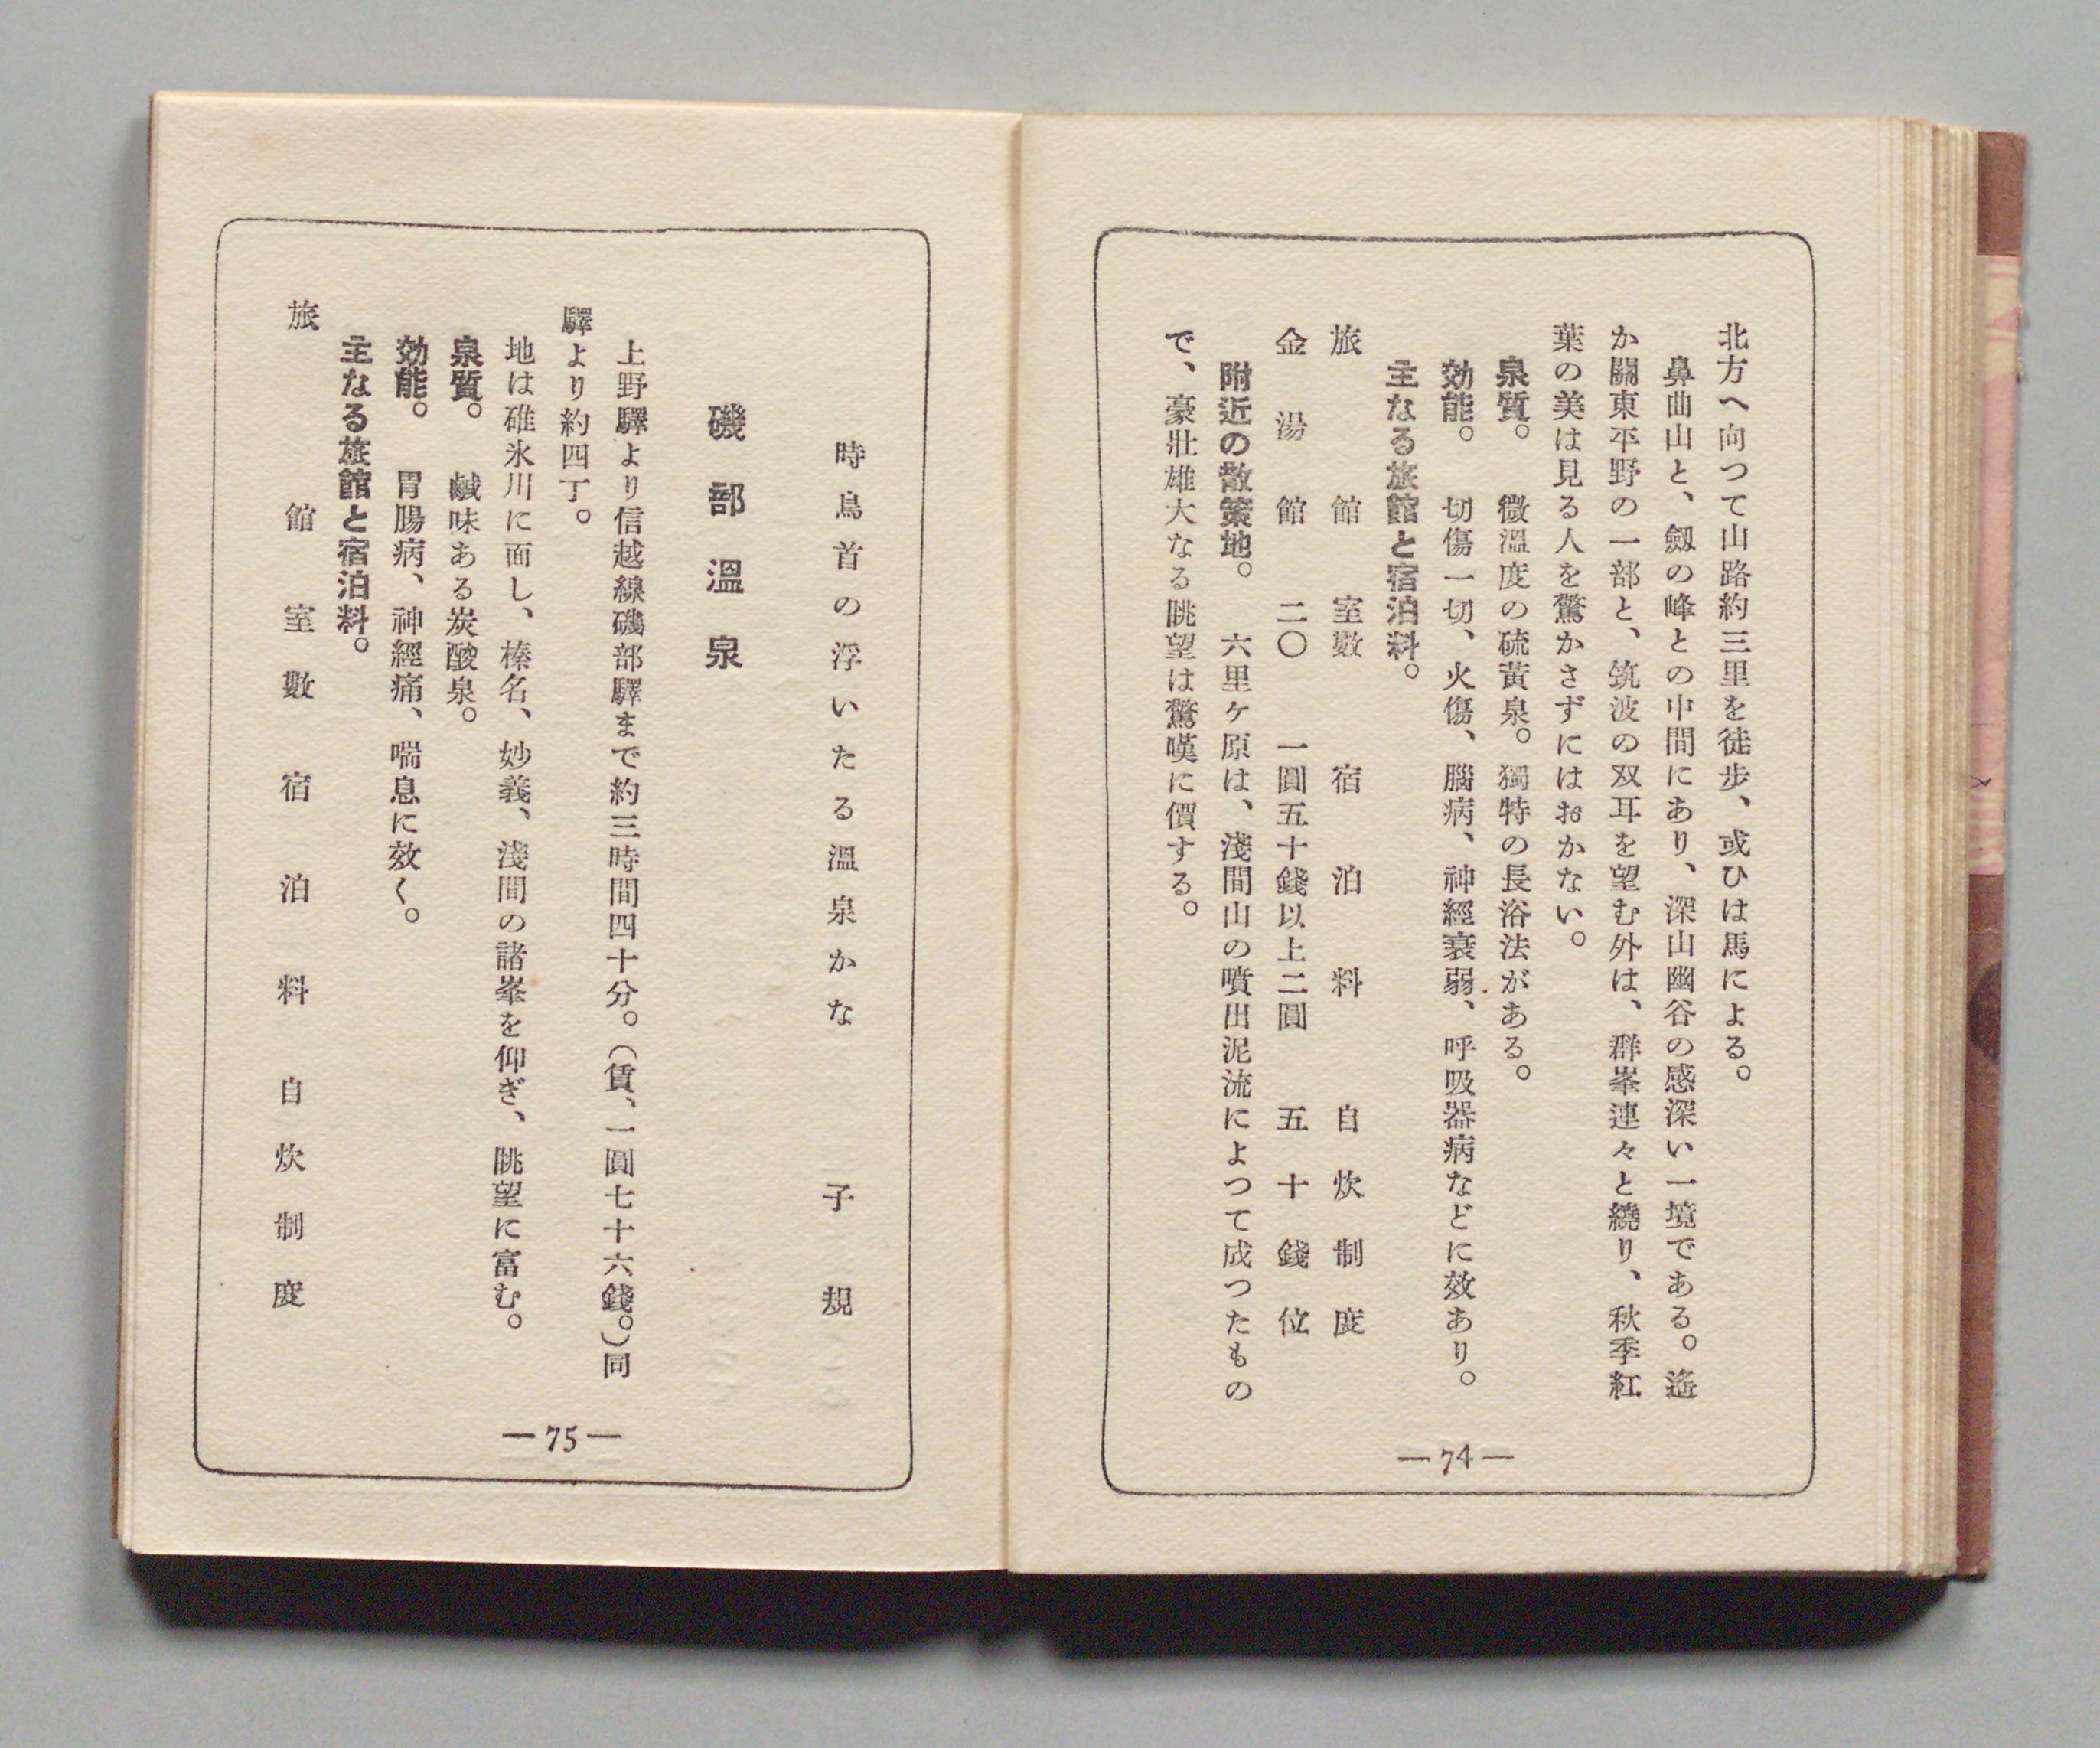 北方へ向つて山路約三里を徒歩、或ひは馬による。
鼻曲山と、劔の峰との中間にあり、深山幽谷の感深い一境である。遙
か關東平野の一部と、筑波の双耳を望む外は、群峯連々と繞り、秋季紅
葉の美は見る人を驚かさずにはおかない。
泉質。 微溫度の硫黃泉。獨特の長浴法がある。
効能。 切傷一切、火傷、腦病、神經衰弱、呼吸器病などに效あり。
主なる旅館と宿泊料。
旅館 室數 宿泊料 自炊制度
金湯館 二〇 一圓五十錢以上二圓 五十錢位
附近の散策地。 六里ヶ原は、淺間山の噴出泥流によつて成つたもの
で、豪壯雄大なる眺望は驚嘆に價する。
—74—
時鳥首の浮いたる溫泉かな 子規
磯部溫泉
上野驛より信越線磯部驛まで約三時間四十分。（賃、一圓七十六錢。）同
驛より約四丁。
地は碓氷川に面し、榛名、妙義、淺間の諸峯を仰ぎ、眺望に富む。
泉質。 鹹味ある炭酸泉。
効能。 胃腸病、神經痛、喘息に效く。
主なる旅館と宿泊料。
旅館 室數 宿泊料 自炊制度
—75—